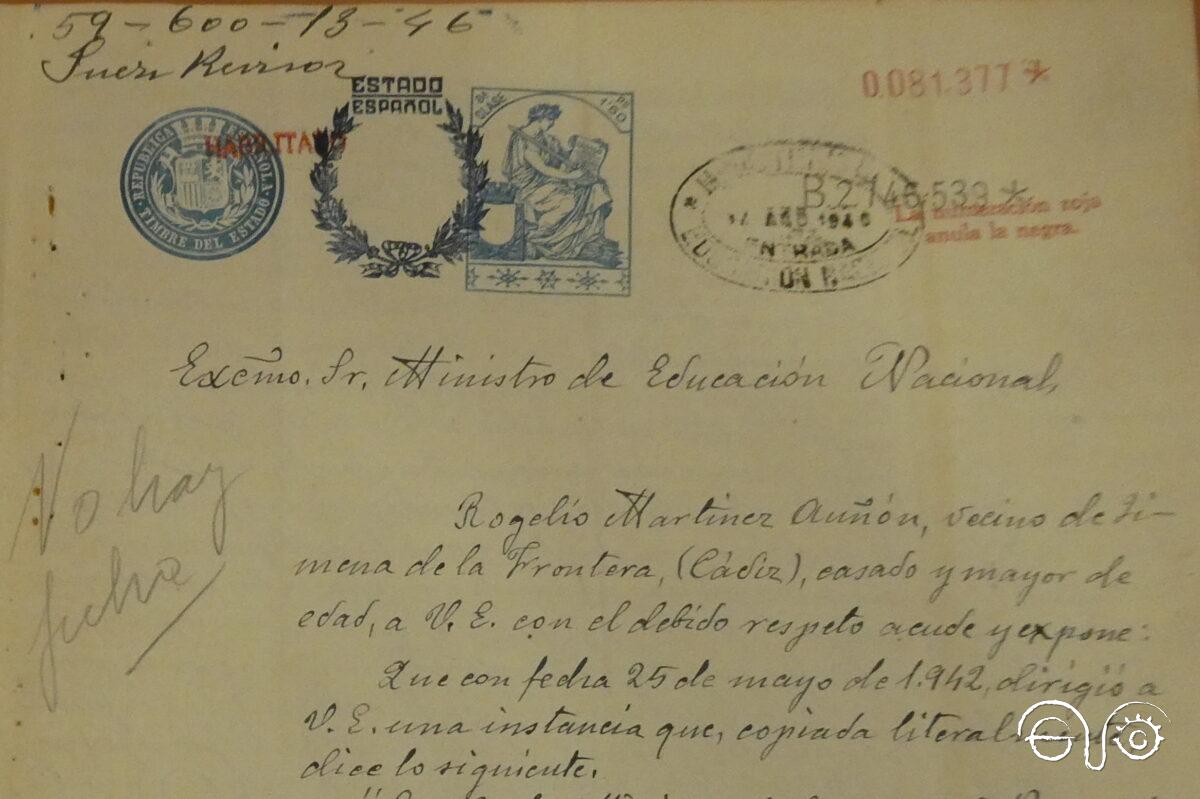 59-600-13-46
Juez Revisor
0.081.377*
ESTADO
ESPAÑOL
HABILITADO
REPUBLICA ESPAÑOLA
TIMBRE DEL ESTADO
8ª CLASE
1'50
B.2746.539*
La numeración roja
anula la negra.
14 AGO 1946
ENTRADA
Excmo. Sr. Ministro de Educación Nacional,
No hay
ficha
Rogelio Martínez Auñón, vecino de Ji-
mena de la Frontera, (Cádiz), casado y mayor de
edad, a V. E. con el debido respeto acude y expone:
Que con fecha 25 de mayo de 1.942, dirigió a
V. E. una instancia que, copiada literalmente
dice lo siguiente.